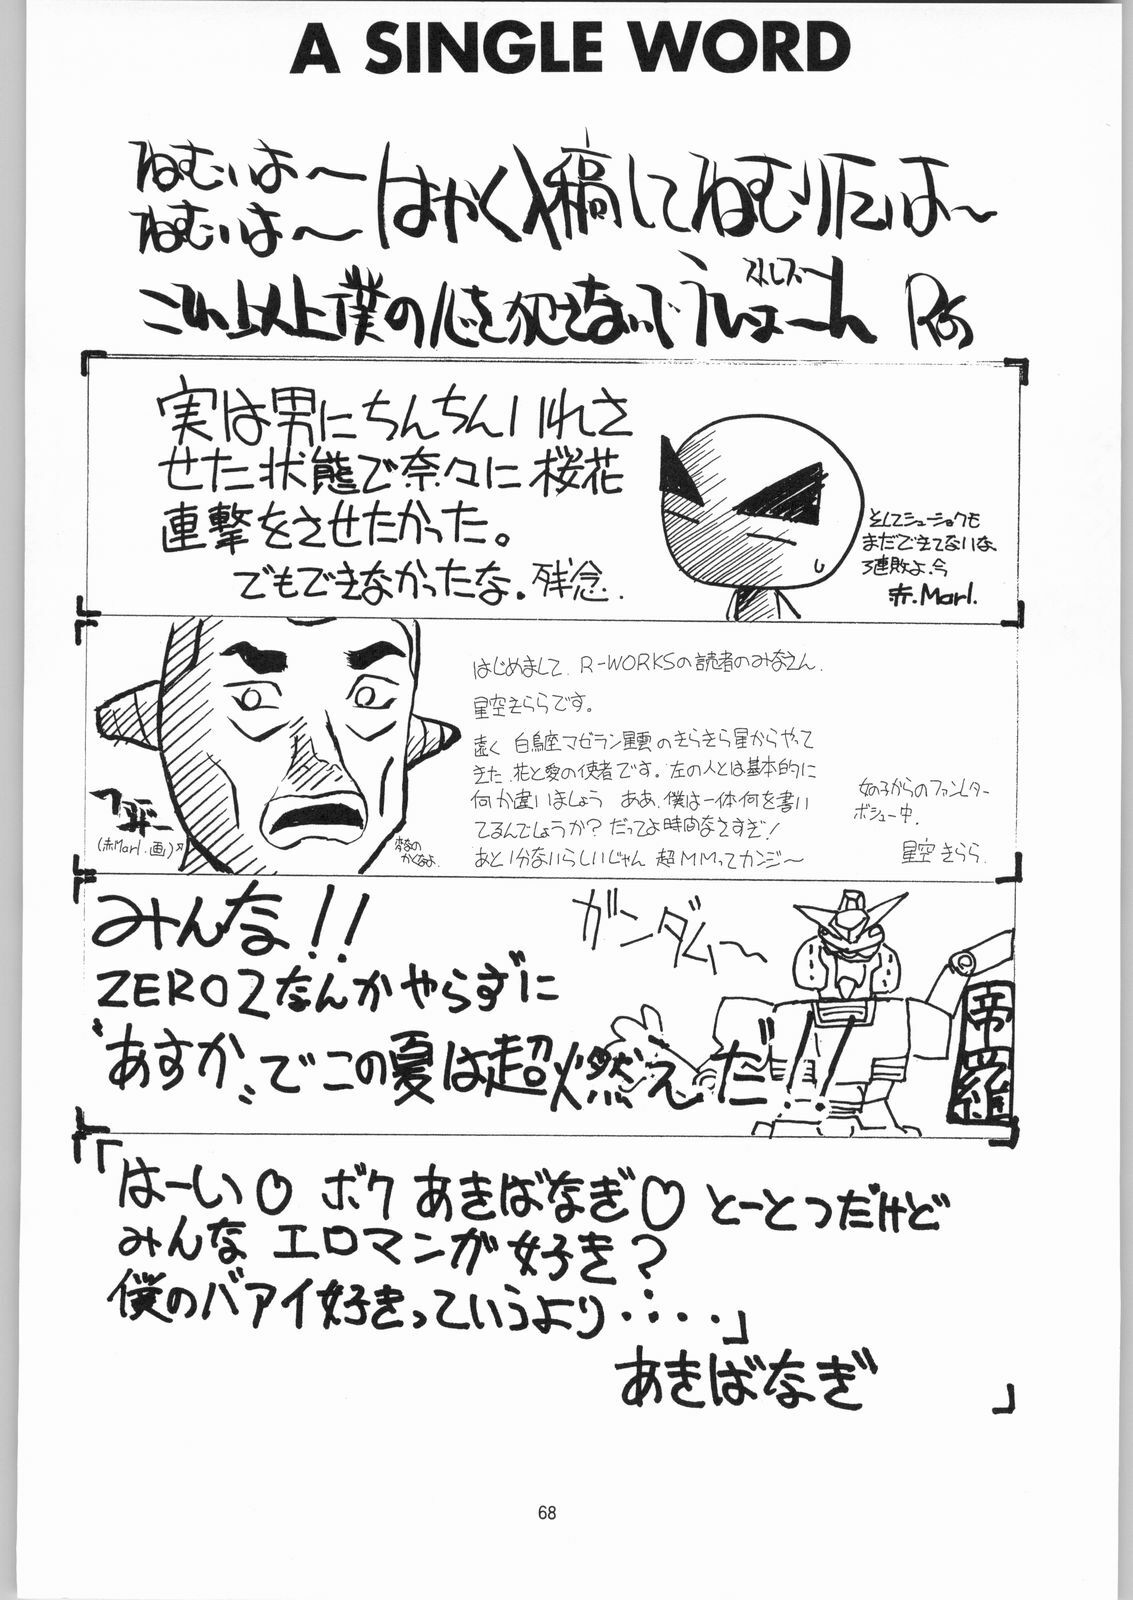 A SINGLE WORD
ねむいよ〜
ねむいよ〜
はやく入稿してねむりたいよ〜
これ以上僕の心を犯さないで
実は男にちんちんいれさ
せた状態で奈々に桜花
連撃をさせたかった。
でもできなかったな。残念.
そしてシューショクも
まだできてないな、
3連敗よ、今
赤.Marl.
(赤Marl.画)
はじめまして、R-WORKSの読者のみなさん、
星空きららです。
遠く 白鳥座マゼラン星雲のきらきら星からやって
きた、花と愛の使者です。左の人とは基本的に
何か違いましょう ああ、僕は一体何を書い
てるんでしょうか？だってよ時間なさすぎ！
あと1分ないらしいじゃん 超MMってカンジ〜
女の子からのファンレター
ボシュー中.
星空きらら.
みんな!!
ZERO2なんかやらずに
"あすか"でこの夏は超燃えだ!!
ガンダム〜
帝羅
「はーい♡ ボク あきばなぎ♡ とーとつだけど
みんな エロマンガ好き？
僕のバアイ好きっていうより・・・・・」
あきばなぎ
68